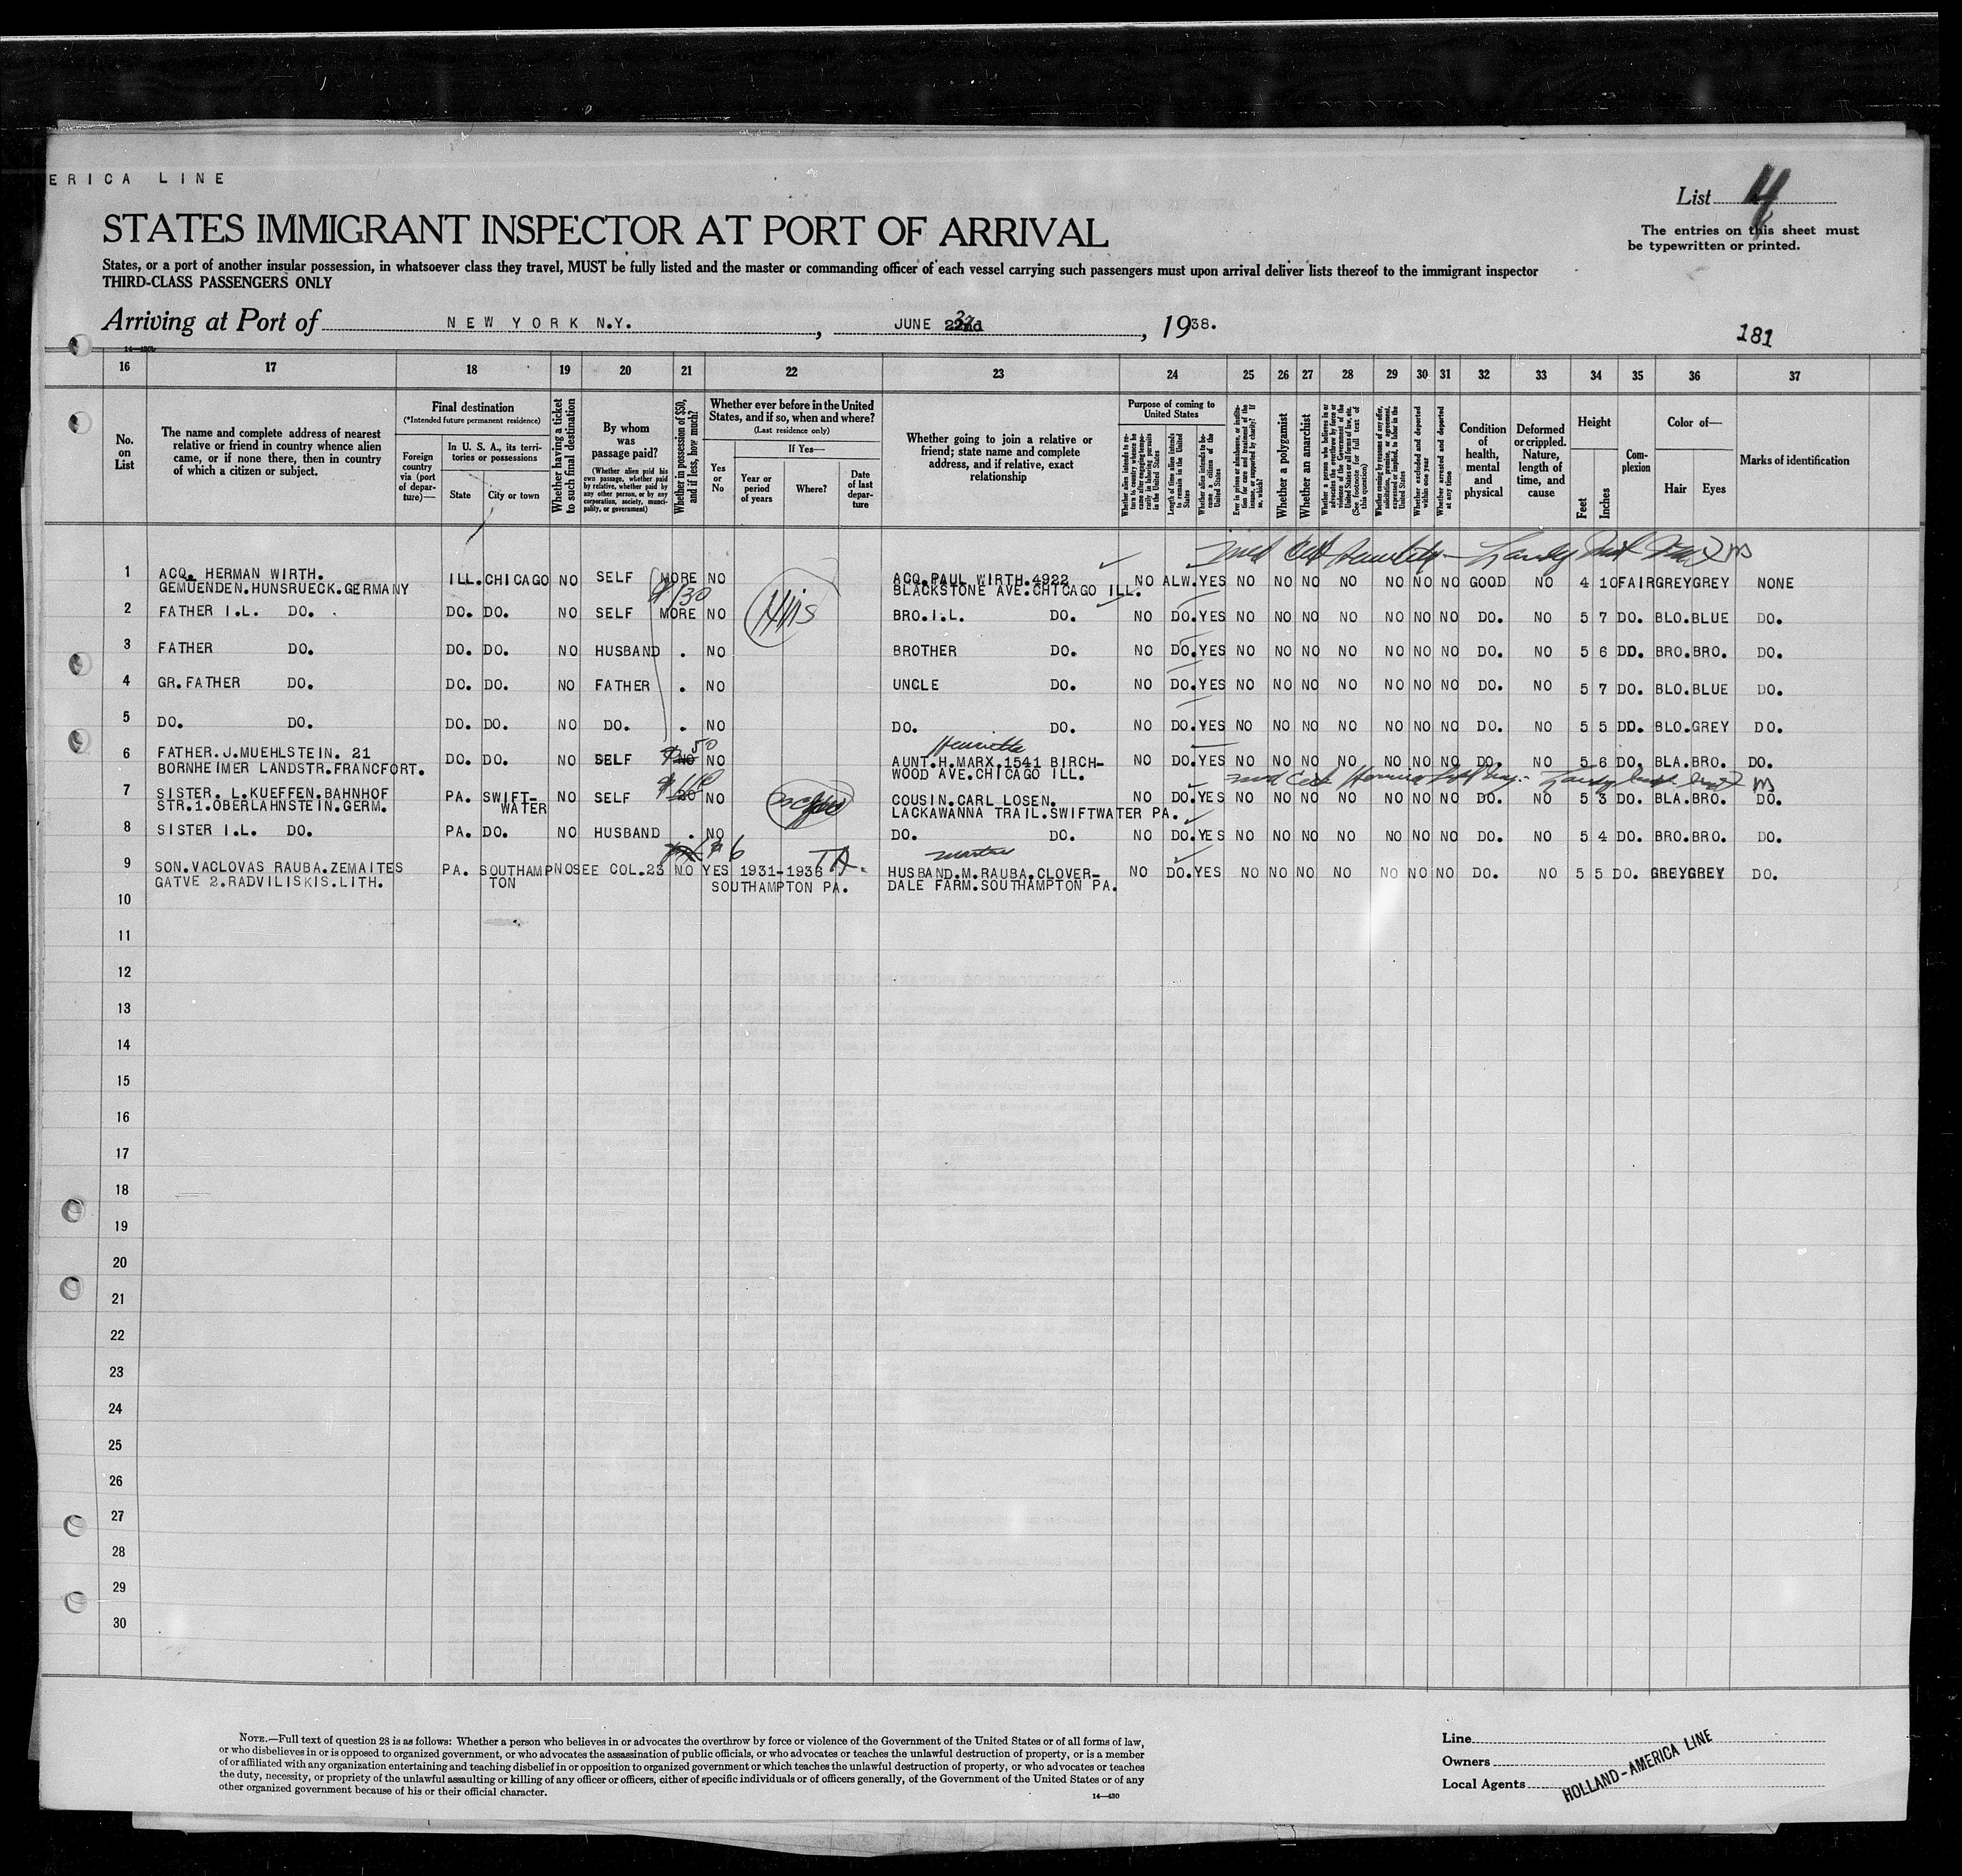 ERICA LINE
List 4
STATES IMMIGRANT INSPECTOR AT PORT OF ARRIVAL
The entries on this sheet must
be typewritten or printed.
States, or a port of another insular possession, in whatsoever class they travel, MUST be fully listed and the master or commanding officer of each vessel carrying such passengers must upon arrival deliver lists thereof to the immigrant inspector
THIRD-CLASS PASSENGERS ONLY
Arriving at Port of NEW YORK N.Y., JUNE, 1938.
181
16 17 18 19 20 21 22 23 24 25 26 27 28 29 30 31 32 33 34 35 36 37
No.
on
List
The name and complete address of nearest
relative or friend in country whence alien
came, or if none there, then in country
of which a citizen or subject.
Final destination
(*Intended future permanent residence)
Foreign
country
via (port
of depar-
ture)—
In U. S. A., its terri-
tories or possessions
State
City or town
Whether having a ticket
to such final destination
By whom
was
passage paid?
(Whether alien paid his
own passage, whether paid
by relative, whether paid by
any other person, or by any
corporation, society, munici-
pality, or government)
Whether in possession of $50,
and if less, how much?
Whether ever before in the United
States, and if so, when and where?
(Last residence only)
Yes
or
No
If Yes—
Year or
period
of years
Where?
Date
of last
depar-
ture
Whether going to join a relative or
friend; state name and complete
address, and if relative, exact
relationship
Purpose of coming to
United States
Whether alien intends to re-
turn to country whence he
came after engaging tempo-
rarily in laboring pursuits
in the United States
Length of time alien intends
to remain in the United
States
Whether alien intends to be-
come a citizen of the
United States
Ever in prison or almshouse, or institu-
tion for care and treatment of the
insane, or supported by charity? If
so, which?
Whether a polygamist
Whether an anarchist
Whether a person who believes in or
advocates the overthrow by force or
violence of the Government of the
United States or all forms of law, etc.
(See footnote for full text of
this question)
Whether coming by reasons of any offer,
solicitation, promise, or agreement,
expressed or implied, to labor in the
United States
Whether excluded and deported
within one year
Whether arrested and deported
at any time
Condition
of
health,
mental
and
physical
Deformed
or crippled.
Nature,
length of
time, and
cause
Height
Feet
Inches
Com-
plexion
Color of—
Hair
Eyes
Marks of identification
1 ACQ. HERMAN WIRTH. ILL. CHICAGO NO SELF MORE NO ACQ. PAUL WIRTH.4922 NO ALW. YES NO NO NO NO NO NO NO GOOD NO 4 10 FAIR GREY GREY NONE
GEMUENDEN.HUNSRUECK.GERMANY $130 BLACKSTONE AVE.CHICAGO ILL.
2 FATHER I.L. DO. DO. DO. NO SELF MORE NO BRO.I.L. DO. NO DO. YES NO NO NO NO NO NO NO DO. NO 5 7 DO. BLO. BLUE DO.
3 FATHER DO. DO. DO. NO HUSBAND . NO BROTHER DO. NO DO. YES NO NO NO NO NO NO NO DO. NO 5 6 DO. BRO. BRO. DO.
4 GR.FATHER DO. DO. DO. NO FATHER . NO UNCLE DO. NO DO. YES NO NO NO NO NO NO NO DO. NO 5 7 DO. BLO. BLUE DO.
5 DO. DO. DO. DO. NO DO. . NO DO. DO. NO DO. YES NO NO NO NO NO NO NO DO. NO 5 5 DO. BLO. GREY DO.
Henrietta
6 FATHER.J.MUEHLSTEIN. 21 DO. DO. NO SELF 50 NO AUNT.H.MARX.1541 BIRCH- NO DO. YES NO NO NO NO NO NO NO DO. NO 5 6 DO. BLA. BRO. DO.
BORNHEIMER LANDSTR.FRANCFORT. WOOD AVE.CHICAGO ILL.
7 SISTER. L.KUEFFEN.BAHNHOF PA. SWIFT- NO SELF NO COUSIN.CARL LOSEN. NO DO. YES NO NO NO NO NO NO NO DO. NO 5 3 DO. BLA. BRO. DO.
STR.1.OBERLAHNSTEIN.GERM. WATER LACKAWANNA TRAIL.SWIFTWATER PA.
8 SISTER I.L. DO. PA. DO. NO HUSBAND . NO DO. DO. NO DO. YES NO NO NO NO NO NO NO DO. NO 5 4 DO. BRO. BRO. DO.
9 SON.VACLOVAS RAUBA.ZEMAITES PA. SOUTHAMP NO SEE COL.23 NO YES 1931-1936 HUSBAND.M.RAUBA.CLOVER- NO DO. YES NO NO NO NO NO NO NO DO. NO 5 5 DO. GREY GREY DO.
GATVE 2.RADVILISKIS.LITH. TON SOUTHAMPTON PA. DALE FARM.SOUTHAMPTON PA.
10
11
12
13
14
15
16
17
18
19
20
21
22
23
24
25
26
27
28
29
30
NOTE.—Full text of question 28 is as follows: Whether a person who believes in or advocates the overthrow by force or violence of the Government of the United States or of all forms of law,
or who disbelieves in or is opposed to organized government, or who advocates the assassination of public officials, or who advocates or teaches the unlawful destruction of property, or is a member
of or affiliated with any organization entertaining and teaching disbelief in or opposition to organized government or which teaches the unlawful destruction of property, or who advocates or teaches
the duty, necessity, or propriety of the unlawful assaulting or killing of any officer or officers, either of specific individuals or of officers generally, of the Government of the United States or of any
other organized government because of his or their official character.
14—430
Line
Owners
Local Agents HOLLAND-AMERICA LINE